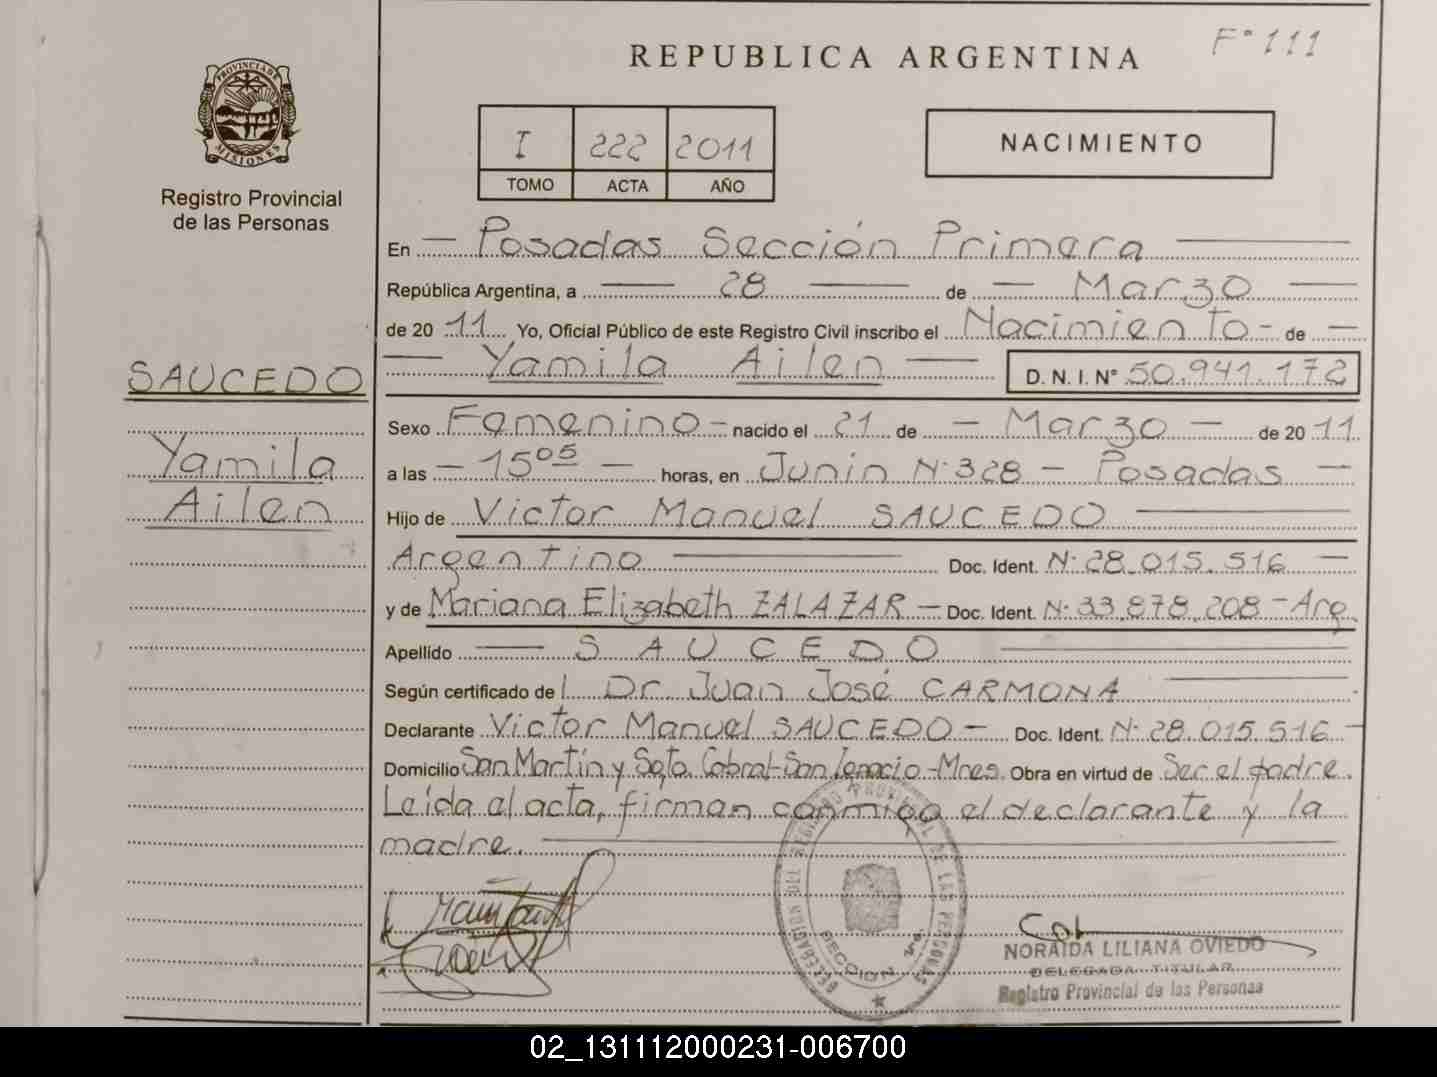 F° 111
REPUBLICA ARGENTINA
PROVINCIA DE MISIONES
Registro Provincial
de las Personas
I 222 2011
TOMO ACTA AÑO
NACIMIENTO
En — Posadas Sección Primera —
República Argentina, a — 28 — de — Marzo —
de 2011 Yo, Oficial Público de este Registro Civil inscribo el Nacimiento - de —
— Yamila Ailen — D. N. I. N° 50.941.172
SAUCEDO
Yamila
Ailen
Sexo Femenino - nacido el 21 de — Marzo — de 2011
a las — 15 05 — horas, en Junin N° 328 — Posadas —
Hijo de Victor Manuel SAUCEDO —
Argentino — Doc. Ident. N° 28.015.516 —
y de Mariana Elizabeth ZALAZAR — Doc. Ident. N° 33.878.208 - Arg.
Apellido — SAUCEDO —
Según certificado del Dr Juan José CARMONA —
Declarante Victor Manuel SAUCEDO — Doc. Ident. N° 28.015.516 —
Domicilio San Martín y Sgto. Cabral - San Ignacio - Mnes. Obra en virtud de Ser el padre.
Leída el acta, firman conmigo el declarante y la
madre. —
DELEGACION DEL REGISTRO PROVINCIAL DE LAS PERSONAS
SECCION
NORAIDA LILIANA OVIEDO
DELEGADA TITULAR
Registro Provincial de las Personas
02_131112000231-006700